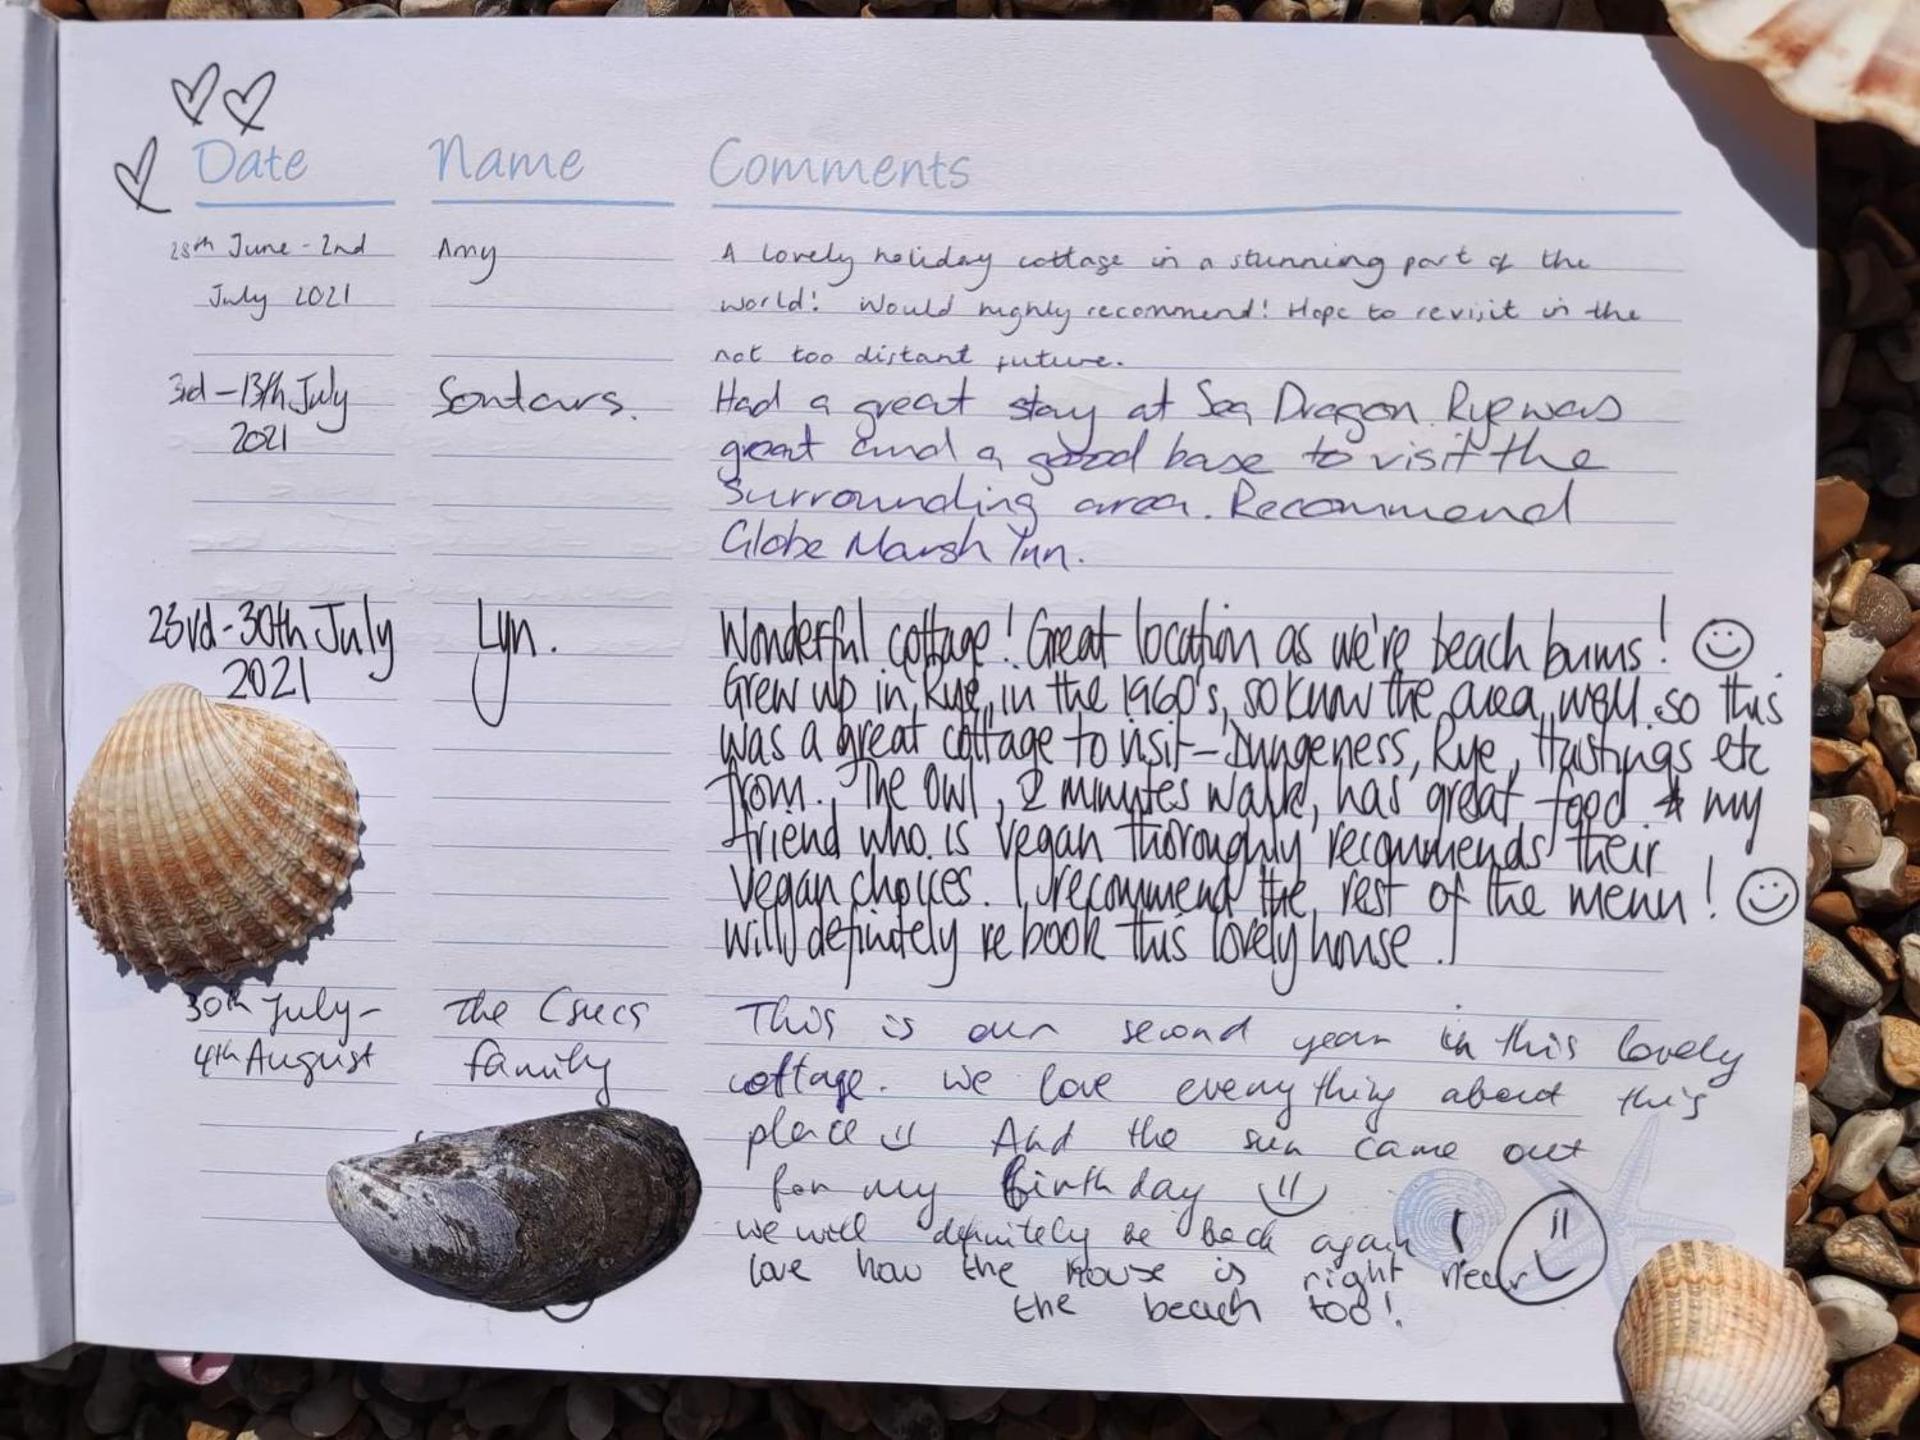 Date Name Comments
28th June - 2nd Amy A lovely holiday cottage in a stunning part of the
July 2021 world! Would highly recommend! Hope to revisit in the
not too distant future.
3rd - 13th July Sontars. Had a great stay at Sea Dragon. Rye was
2021 great and a good base to visit the
surrounding area. Recommend
Globe Marsh Inn.
23rd - 30th July Lyn. Wonderful cottage! Great location as we're beach bums!
2021 Grew up in Rye, in the 1960's, so know the area well so this
was a great cottage to visit - Dungeness, Rye, Hastings etc
from. The Owl, 2 minutes walk, has great food & my
friend who is vegan thoroughly recommends their
vegan choices. I recommend the rest of the menu!
will definitely rebook this lovely house.
30th July - The Csucs This is our second year in this lovely
4th August family cottage. We love everything about this
place And the sun came out
for my birthday
we will definitely be back again!
love how the house is right near
the beach too!